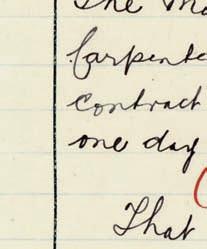 The
Carpente
contract
one day
That